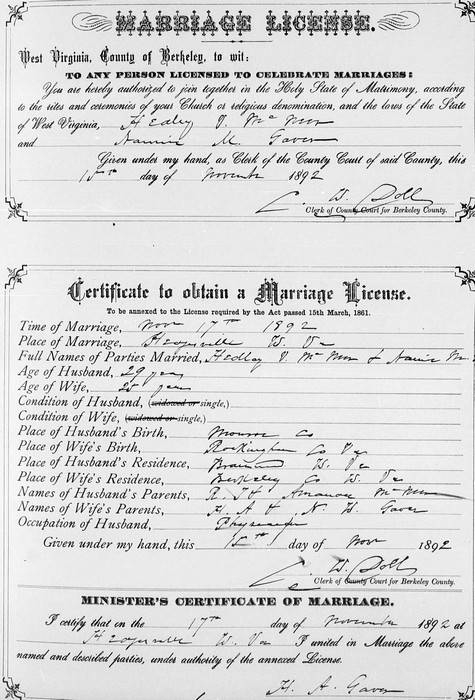 MARRIAGE LICENSE.
West Virginia, County of Berkeley, to wit:
TO ANY PERSON LICENSED TO CELEBRATE MARRIAGES:
You are hereby authorized to join together in the Holy State of Matrimony, according
to the rites and ceremonies of your Church or religious denomination, and the laws of the State
of West Virginia, Hedley V. McMun
and Nannie M. Gaver
Given under my hand, as Clerk of the County Court of said County, this
day of November 1892
C. W. Doll
Clerk of County Court for Berkeley County.
Certificate to obtain a Marriage License.
To be annexed to the License required by the Act passed 15th March, 1861.
Time of Marriage, Nov 17th 1892
Place of Marriage, W. Va
Full Names of Parties Married, Hedley V. McMun & Nannie M.
Age of Husband, 29 years
Age of Wife, 25 years
Condition of Husband, (widowed or single,)
Condition of Wife, (widowed or single,)
Place of Husband's Birth, Monroe Co
Place of Wife's Birth, Rockingham Co Va
Place of Husband's Residence, W. Va
Place of Wife's Residence, Berkeley Co W. Va
Names of Husband's Parents, Amanda McMun
Names of Wife's Parents, H. A. & N. W. Gaver
Occupation of Husband,
Given under my hand, this day of Nov 1892
C. W. Doll
Clerk of County Court for Berkeley County.
MINISTER'S CERTIFICATE OF MARRIAGE.
I certify that on the 17th day of November 1892 at
W. Va I united in Marriage the above
named and described parties, under authority of the annexed License.
H. A. Gaver